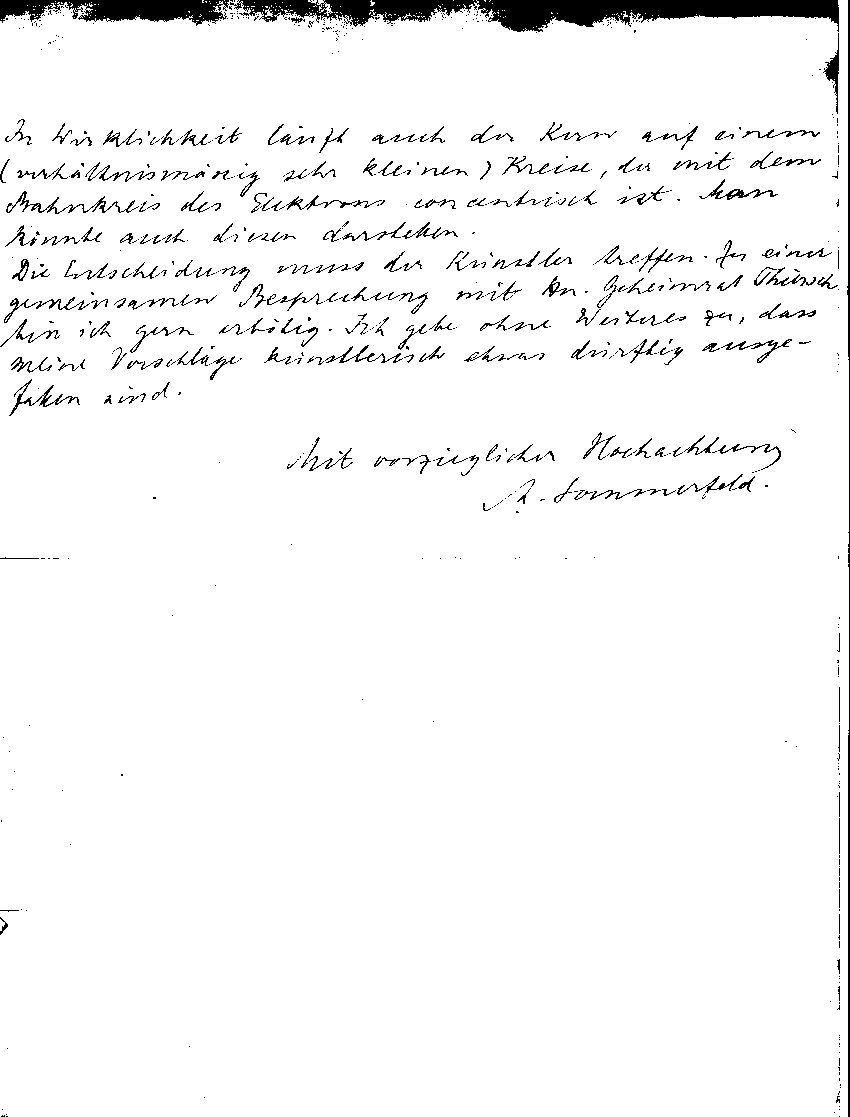 In Wirklichkeit läuft auch der Kern auf einem
(verhältnismässig sehr kleinen) Kreise, der mit dem
Bahnkreis des Elektrons concentrisch ist. Man
könnte auch diesen darstellen.
Die Entscheidung muss der Künstler treffen. Zu einer
gemeinsamen Besprechung mit Hn. Geheimrat Thiersch
bin ich gern erbötig. Ich gebe ohne Weiteres zu, dass
meine Vorschläge künstlerisch etwas dürftig ausge-
fallen sind.
Mit vorzüglicher Hochachtung
A. Sommerfeld.